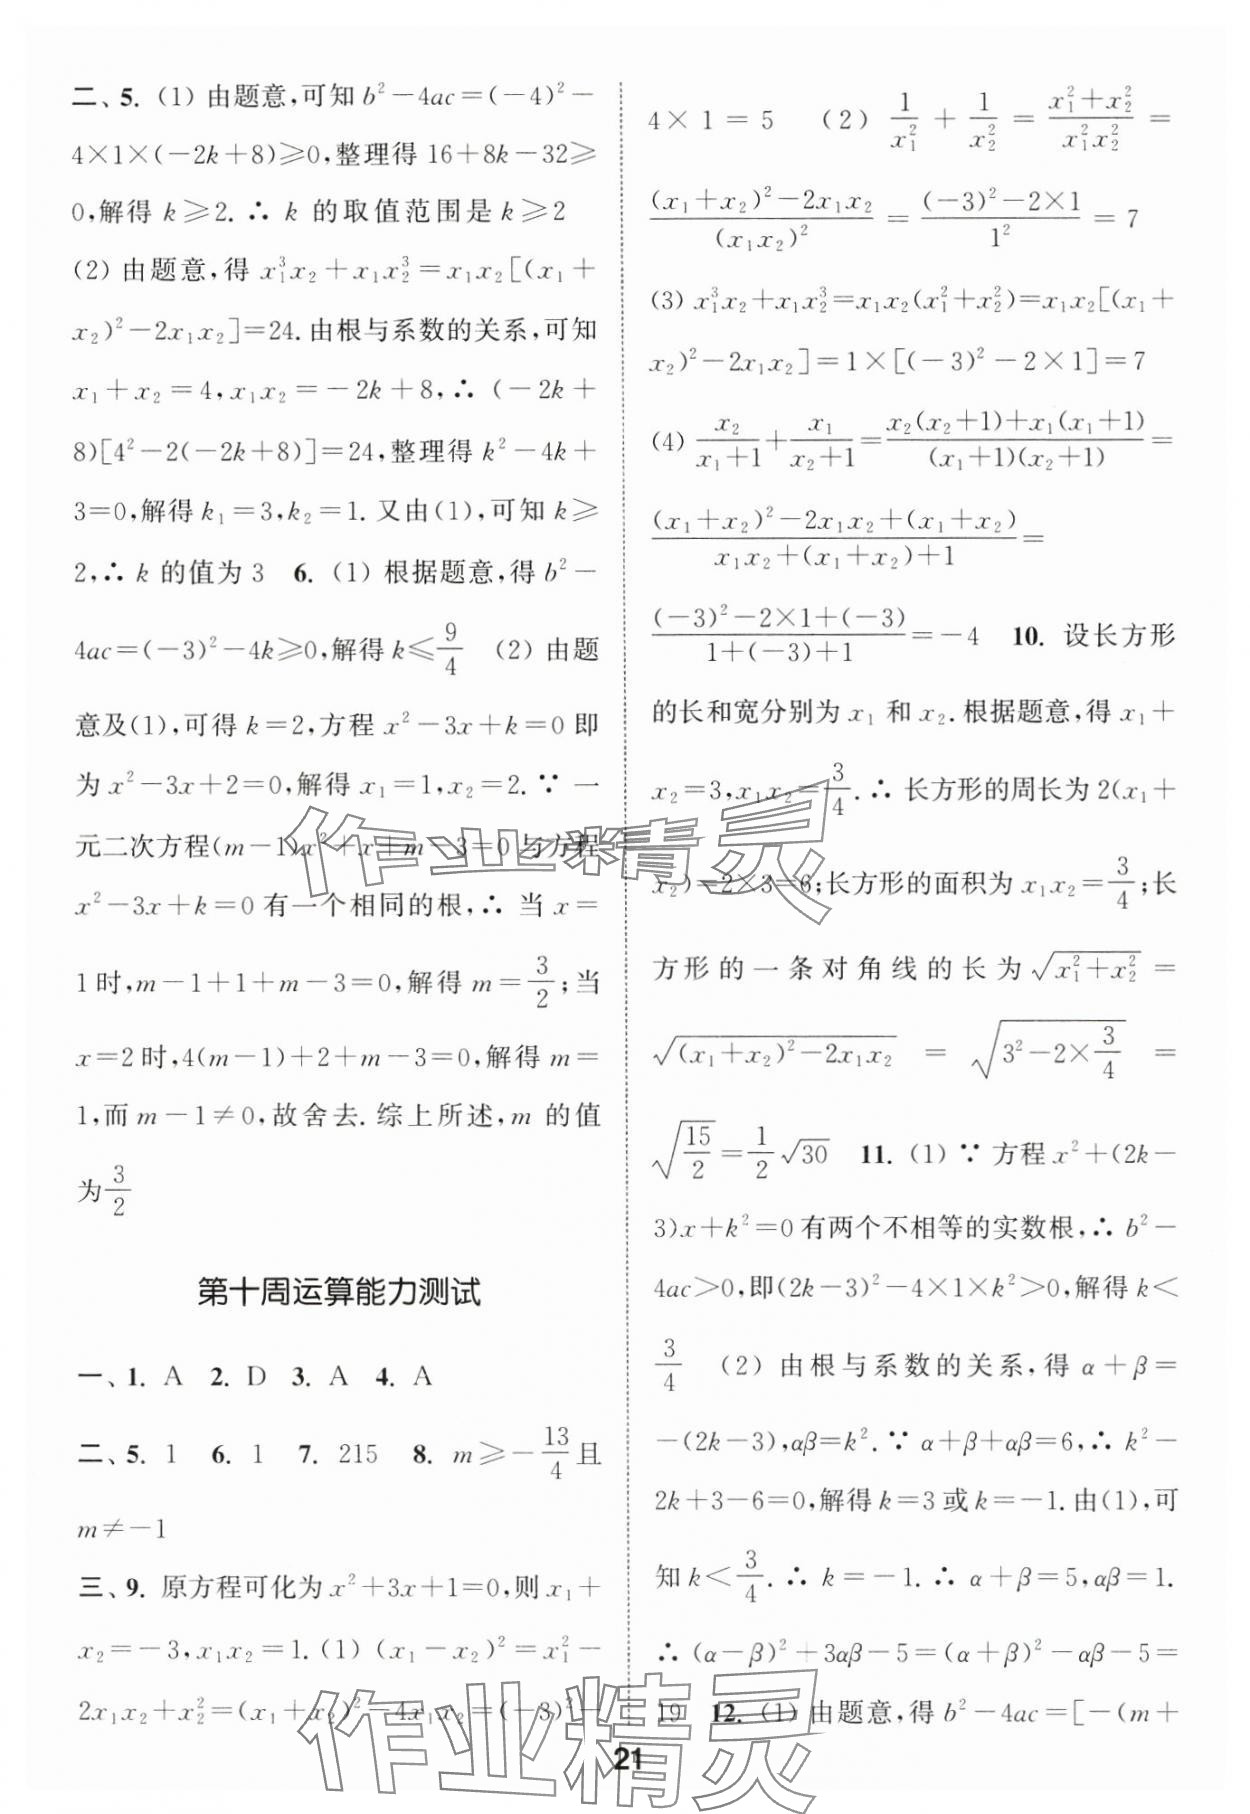 二、5. (1) 由题意,可知 b²－4ac＝(－4)²－
4×1×(－2k＋8)≥0,整理得 16＋8k－32≥
0,解得 k≥2. ∴ k 的取值范围是 k≥2
(2) 由题意,得 x₁³x₂＋x₁x₂³＝x₁x₂[(x₁＋
x₂)²－2x₁x₂]＝24. 由根与系数的关系,可知
x₁＋x₂＝4,x₁x₂＝－2k＋8,∴ (－2k＋
8)[4²－2(－2k＋8)]＝24,整理得 k²－4k＋
3＝0,解得 k₁＝3,k₂＝1. 又由(1),可知 k≥
2,∴ k 的值为 3 6. (1) 根据题意,得 b²－
4ac＝(－3)²－4k≥0,解得 k≤9/4 (2) 由题
意及(1),可得 k＝2,方程 x²－3x＋k＝0 即
为 x²－3x＋2＝0,解得 x₁＝1,x₂＝2. ∵ 一
元二次方程(m－1)x²＋x＋m－3＝0 与方程
x²－3x＋k＝0 有一个相同的根,∴ 当 x＝
1 时,m－1＋1＋m－3＝0,解得 m＝3/2;当
x＝2 时,4(m－1)＋2＋m－3＝0,解得 m＝
1,而 m－1≠0,故舍去. 综上所述,m 的值
为3/2
第十周运算能力测试
一、1. A 2. D 3. A 4. A
二、5. 1 6. 1 7. 215 8. m≥－13/4且
m≠－1
三、9. 原方程可化为 x²＋3x＋1＝0,则 x₁＋
x₂＝－3,x₁x₂＝1. (1) (x₁－x₂)²＝x₁²－
2x₁x₂＋x₂²＝(x₁＋x₂)²－4x₁x₂＝(－3)²－
4×1＝5 (2) 1/x₁²＋1/x₂²＝(x₁²＋x₂²)/(x₁²x₂²)＝
((x₁＋x₂)²－2x₁x₂)/(x₁x₂)²＝((－3)²－2×1)/1²＝7
(3) x₁³x₂＋x₁x₂³＝x₁x₂(x₁²＋x₂²)＝x₁x₂[(x₁＋
x₂)²－2x₁x₂]＝1×[(－3)²－2×1]＝7
(4) x₂/(x₁＋1)＋x₁/(x₂＋1)＝(x₂(x₂＋1)＋x₁(x₁＋1))/((x₁＋1)(x₂＋1))＝
((x₁＋x₂)²－2x₁x₂＋(x₁＋x₂))/(x₁x₂＋(x₁＋x₂)＋1)＝
((－3)²－2×1＋(－3))/(1＋(－3)＋1)＝－4 10. 设长方形
的长和宽分别为 x₁ 和 x₂. 根据题意,得 x₁＋
x₂＝3,x₁x₂＝3/4. ∴ 长方形的周长为 2(x₁＋
x₂)＝2×3＝6;长方形的面积为 x₁x₂＝3/4;长
方形的一条对角线的长为 √(x₁²＋x₂²)＝
√((x₁＋x₂)²－2x₁x₂)＝√(3²－2×3/4)＝
√(15/2)＝1/2√30 11. (1) ∵ 方程 x²＋(2k－
3)x＋k²＝0 有两个不相等的实数根,∴ b²－
4ac＞0,即(2k－3)²－4×1×k²＞0,解得 k＜
3/4 (2) 由根与系数的关系,得 α＋β＝
－(2k－3),αβ＝k². ∵ α＋β＋αβ＝6,∴ k²－
2k＋3－6＝0,解得 k＝3 或 k＝－1. 由(1),可
知 k＜3/4. ∴ k＝－1. ∴ α＋β＝5,αβ＝1.
∴ (α－β)²＋3αβ－5＝(α＋β)²－αβ－5＝
19 12. (1) 由题意,得 b²－4ac＝[－(m＋
21
作业精灵
作业精灵